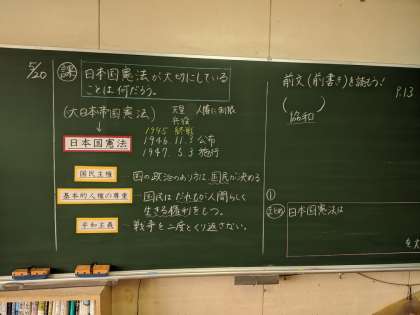 5/20
課 日本国憲法が大切にしている
ことは何だろう。
(大日本帝国憲法) 天皇 人権に制限
兵役
1945 終戦
1946.11.3 公布
日本国憲法
1947.5.3 施行
国民主権 国の政治のあり方は、国民が決める
基本的人権の尊重 国民はだれもが人間らしく
生きる権利をもつ。
平和主義 戦争を二度とくり返さない。
前文(前書き)を読もう!
P.13
( )
協和
①
まとめ 日本国憲法は